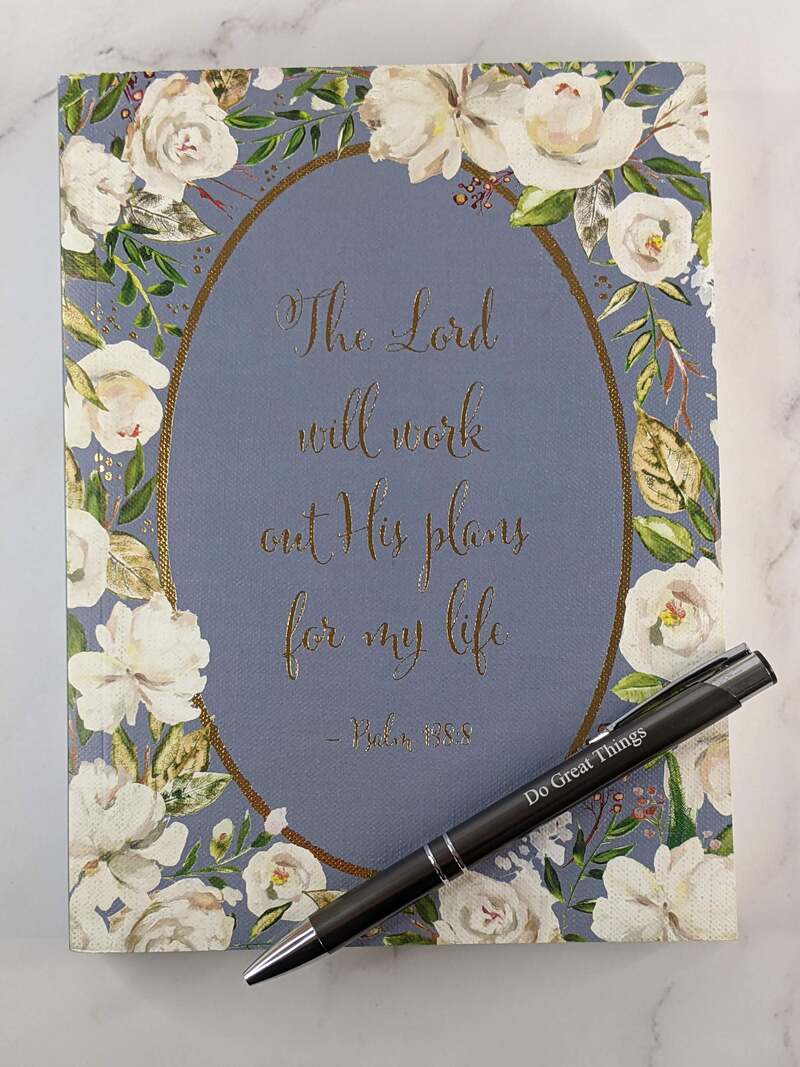 The Lord
will work
out His plans
for my life
– Psalm 138:8
Do Great Things